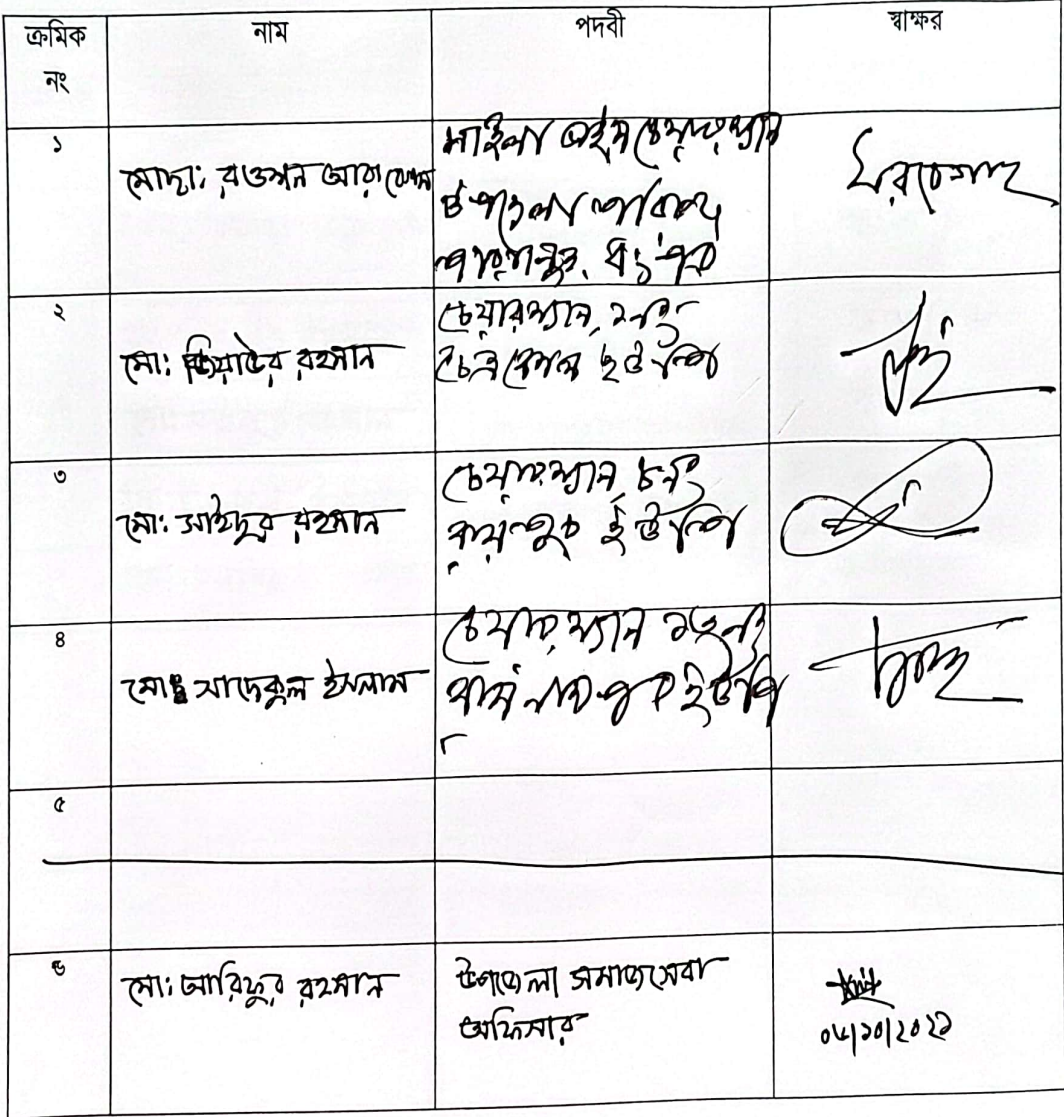 ক্রমিক নং নাম পদবী স্বাক্ষর
১ মোছা: রওশন আরা বেগম মহিলা ভাইস চেয়ারম্যান
উপজেলা পরিষদ
২ মো: জিয়াউর রহমান চেয়ারম্যান, ১নং
চৈত্রকোল ইউপি
৩ মো: সাইদুর রহমান চেয়ারম্যান ৮নং
রায়পুর ইউপি
৪ মোঃ সাদেকুল ইসলাম চেয়ারম্যান ১২নং
ইউপি
৫
৬ মো: আরিফুর রহমান উপজেলা সমাজসেবা
অফিসার